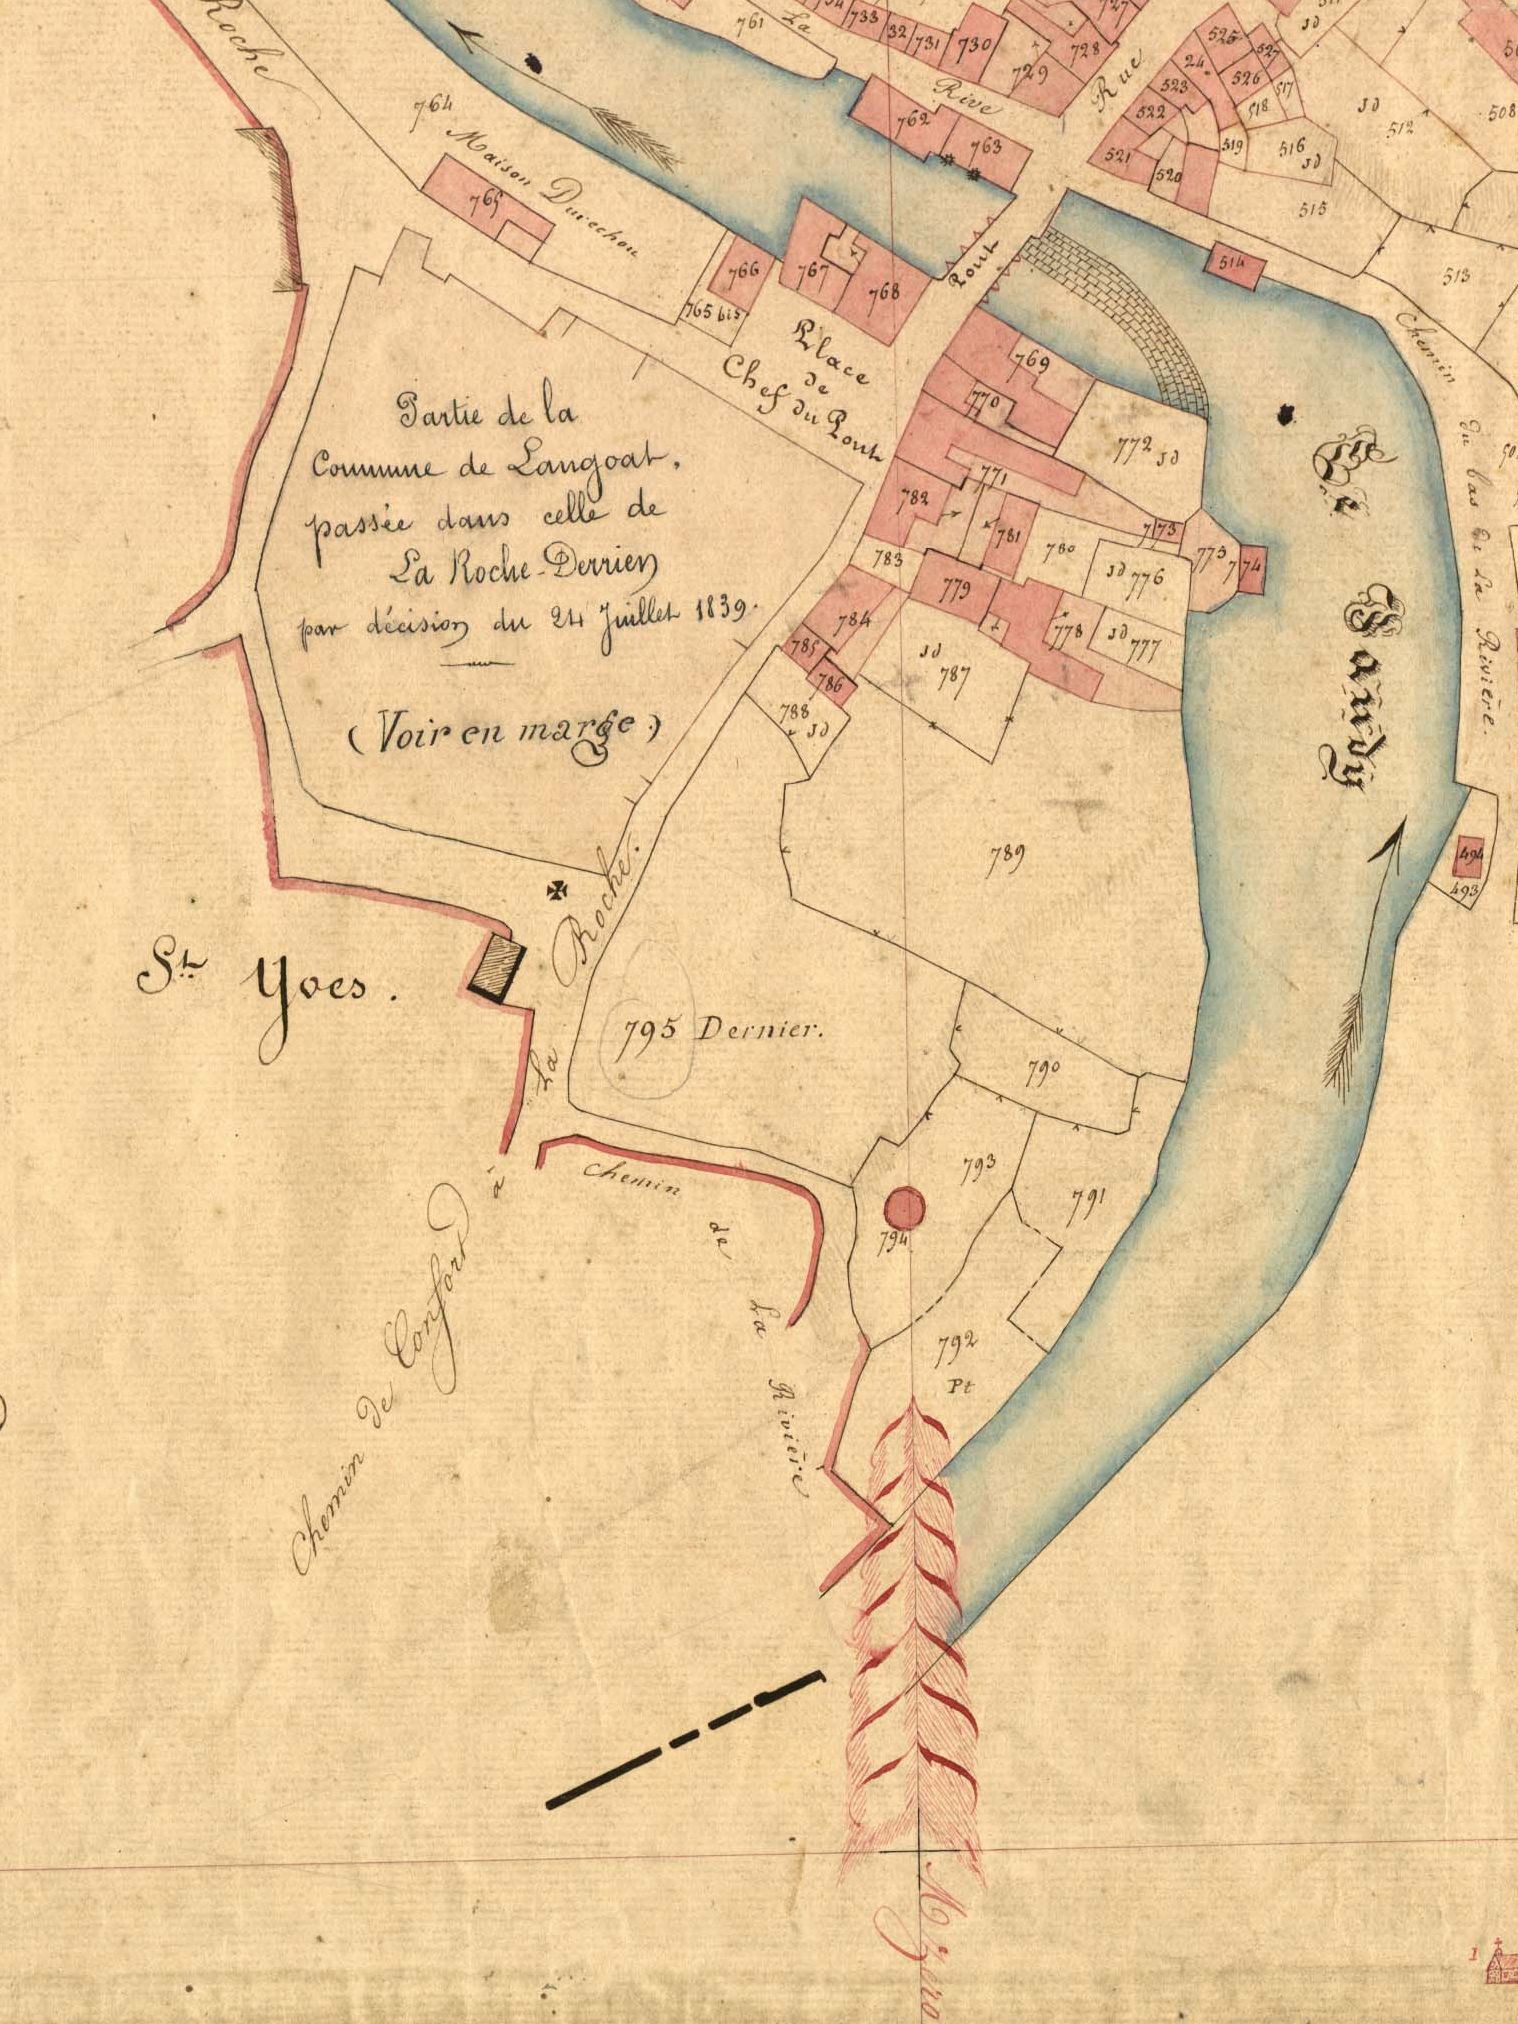 Roche
764
Maison Durechou
765
766
765 bis
767
768
761
La
Rive
733
32
731
730
729
728
727
762
763
Rue
525
527
24
526
523
517
518
522
521
520
519
516
Jd
515
Jd
512
508
514
513
Pont
Place
de
Chef du Pont
Chemin
du bas de La Rivière.
769
770
771
772 Jd
782
781
780
783
773
773
774
Jd 776
779
778
Jd 777
784
785
786
Jd
787
788
Jd
789
Le
Jaudy
494
493
Partie de la
Commune de Langoat,
passée dans celle de
La Roche-Derrien
par décision du 24 Juillet 1839.
(Voir en marge.)
St. Yves.
795 Dernier.
790
793
791
794
792
Pt
Chemin de Confort à La Roche.
Chemin
de
La
Rivière
M zéro
1